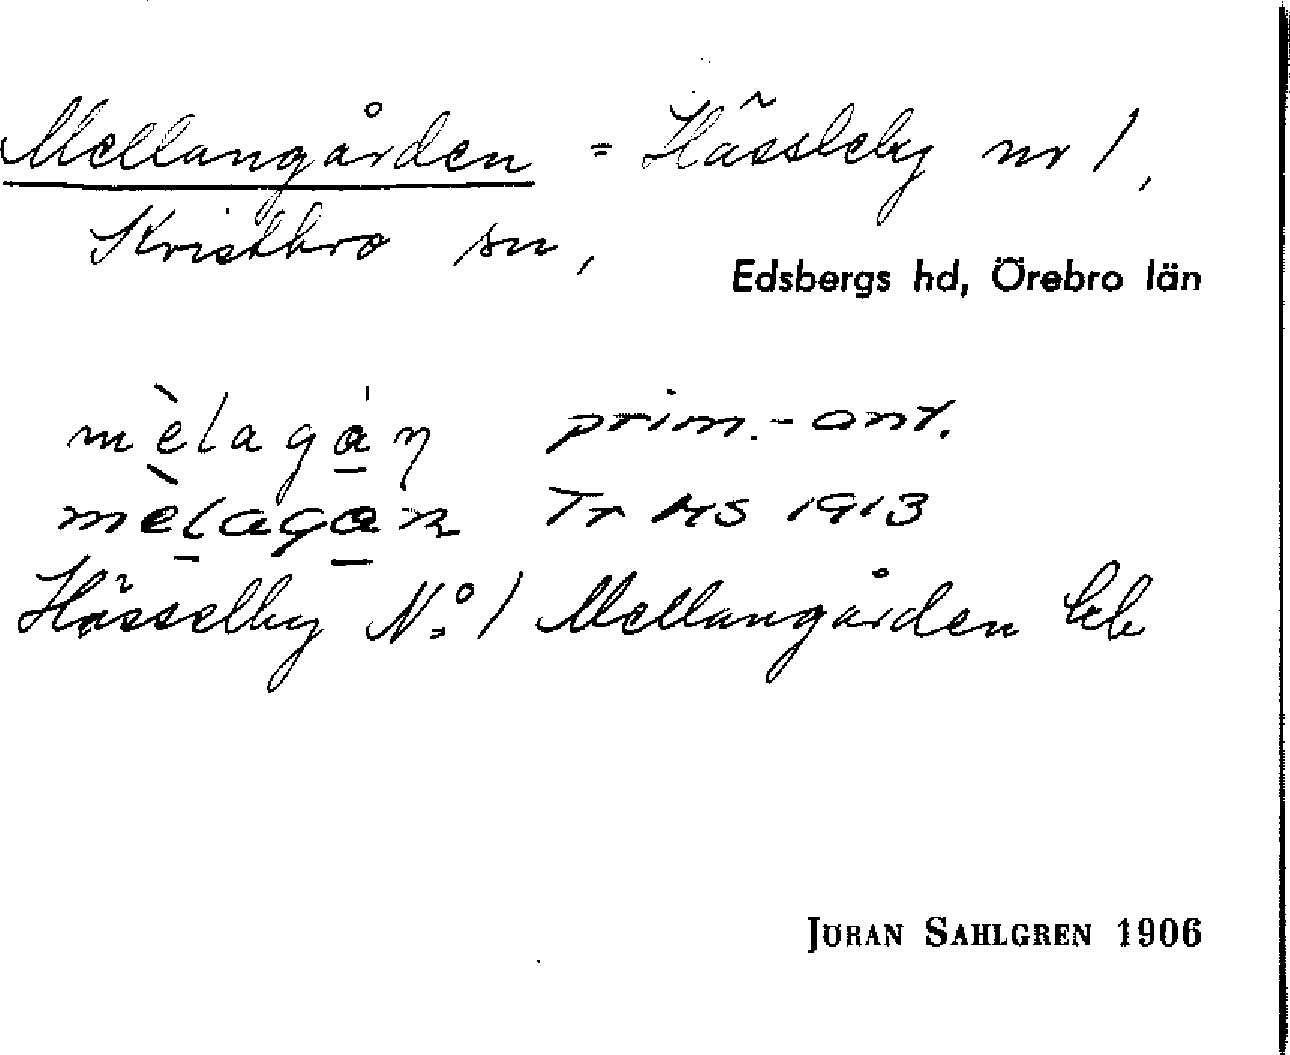 Mellangården = Hässleby nr 1,
Kristbro sn,
Edsbergs hd, Örebro län
mèlagán prim.-ant.
mèlagan Tr MS 1913
Hässelby N:o 1 Mellangården kb
JÖRAN SAHLGREN 1906